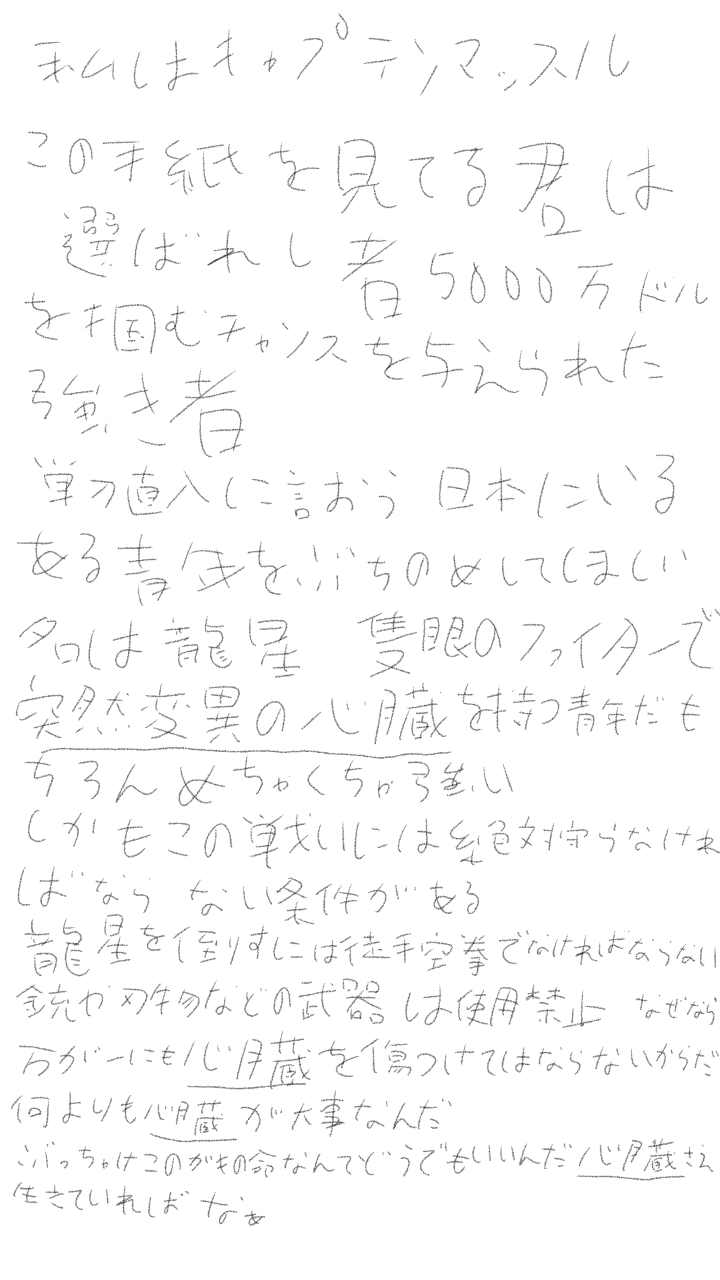 私はキャプテンマッスル
この手紙を見てる君は
選ばれし者5000万ドル
を掴むチャンスを与えられた
強き者
単刀直入に言おう 日本にいる
ある青年をぶちのめしてほしい
名は龍星 隻眼のファイターで
突然変異の心臓を持つ青年だも
ちろんめちゃくちゃ強い
しかもこの戦いには絶対守らなけれ
ばならない条件がある
龍星を倒すには徒手空拳でなければならない
銃や刃物などの武器は使用禁止 なぜなら
万が一にも心臓を傷つけてはならないからだ
何よりも心臓が大事なんだ
ぶっちゃけこのガキの命なんてどうでもいいんだ心臓さえ
生きていればなぁ